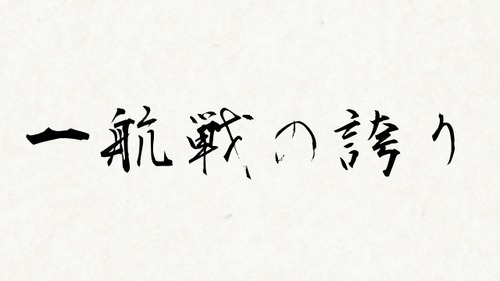 一航戦の誇り